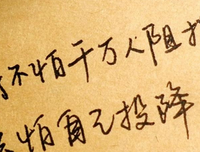 不怕千万人阻挡
怕自己投降